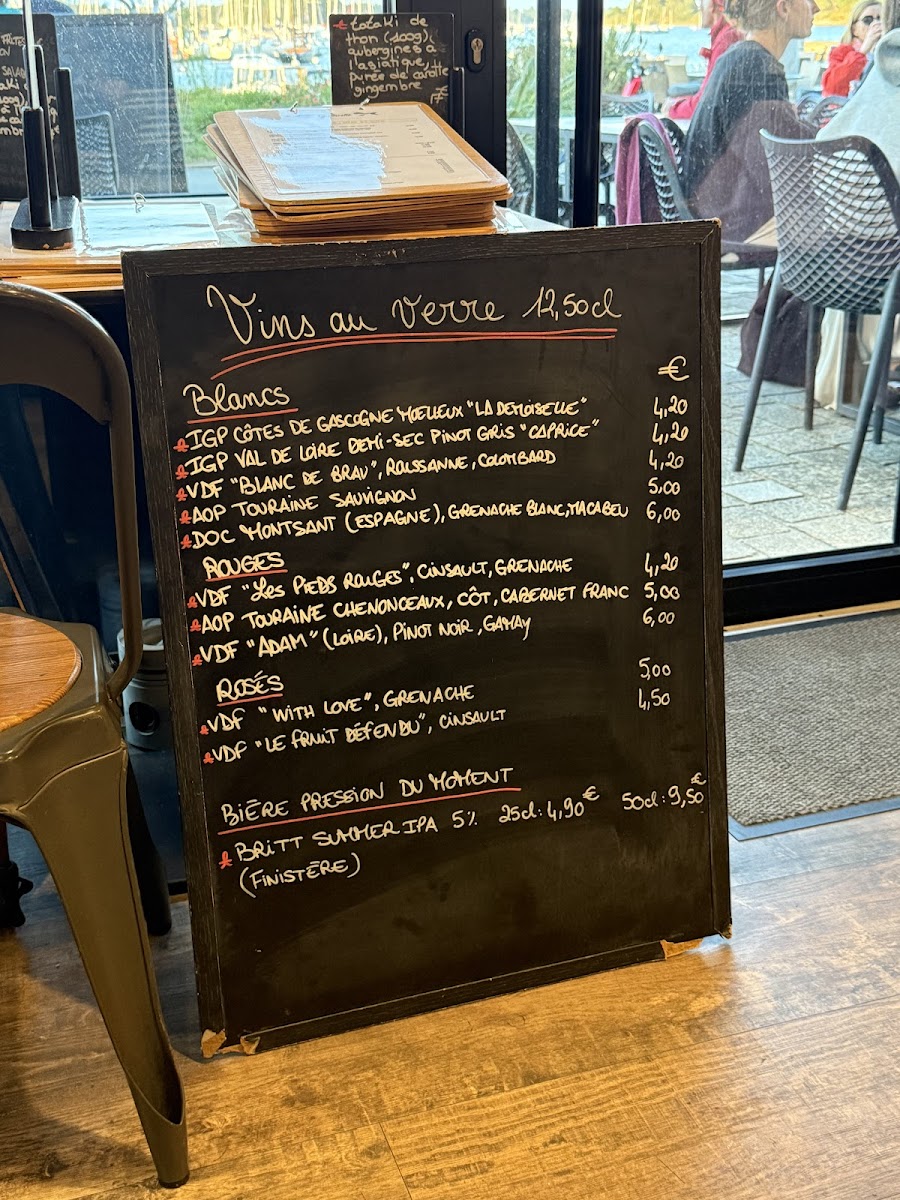 totaki de
thon (100g)
aubergines à
l'asiatique,
purée de carotte
gingembre
Vins au verre 12,50cl
€
Blancs
IGP CÔTES DE GASCOGNE MOELLEUX "LA DEMOISELLE" 4,20
IGP VAL DE LOIRE DEMI-SEC PINOT GRIS "CAPRICE" 4,20
VDF "BLANC DE BRAU", ROUSSANNE, COLOMBARD 4,20
AOP TOURAINE SAUVIGNON 5,00
DOC MONTSANT (ESPAGNE), GRENACHE BLANC, MACABEU 6,00
ROUGES
VDF "LES PIEDS ROUGES", CINSAULT, GRENACHE 4,20
AOP TOURAINE CHENONCEAUX, CÔT, CABERNET FRANC 5,00
VDF "ADAM" (LOIRE), PINOT NOIR, GAMAY 6,00
ROSÉS
VDF "WITH LOVE", GRENACHE 5,00
VDF "LE FRUIT DÉFENDU", CINSAULT 4,50
BIÈRE PRESSION DU MOMENT
BRITT SUMMER IPA 5% 25cl: 4,90€ 50cl: 9,50€
(FINISTÈRE)